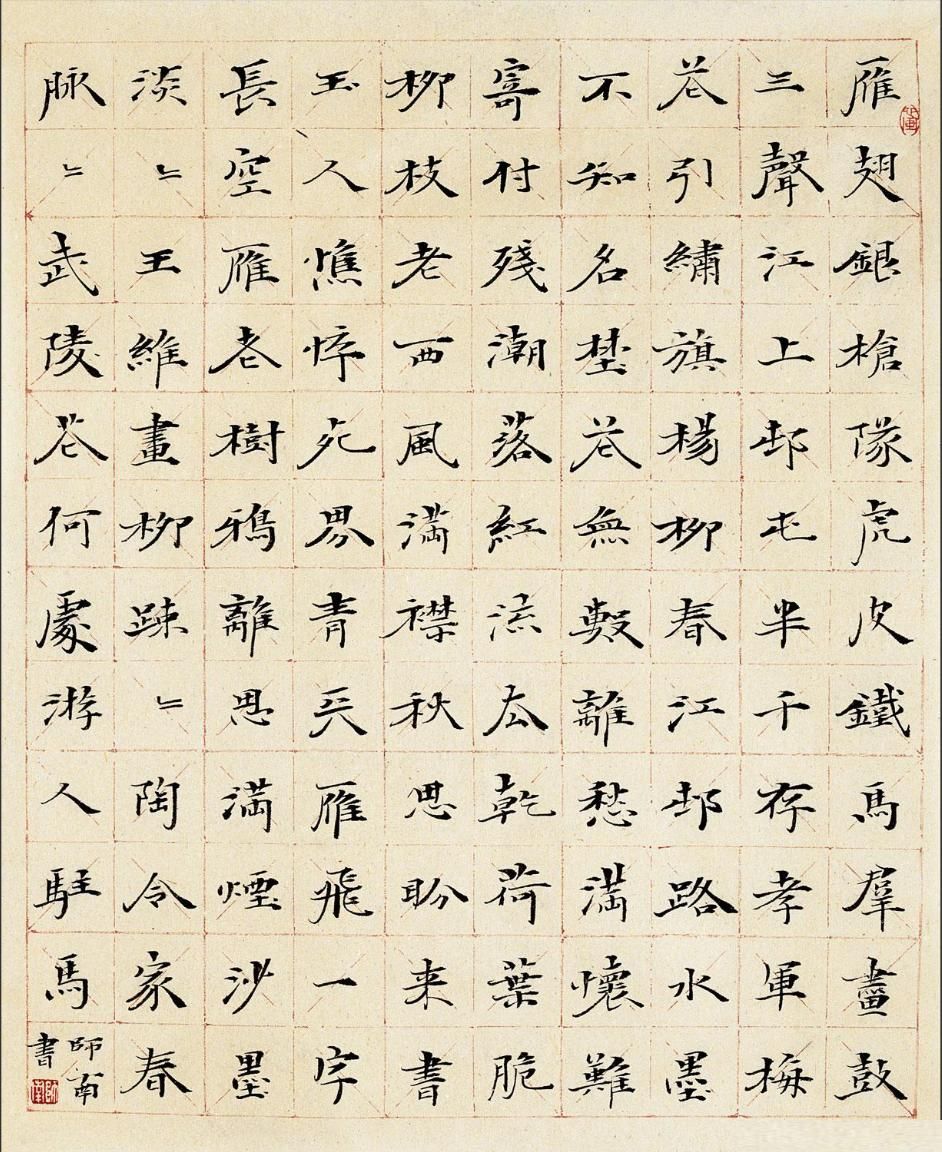 雁翅銀槍隊虎皮鐵馬羣畫鼓
三聲江上邨屯半千存孝軍梅
花引繡旗楊柳春江邨路水墨
不知名埜花無數離愁滿懷難
寄付殘潮落紅流去乾荷葉脆
柳枝老西風滿襟秋思盼来書
玉人憔悴死界青天雁飛一字
長空雁老樹鴉離思滿煙沙墨
淡〻王維畫柳疎〻陶令家春
脉〻武陵花何處游人駐馬
師南
書